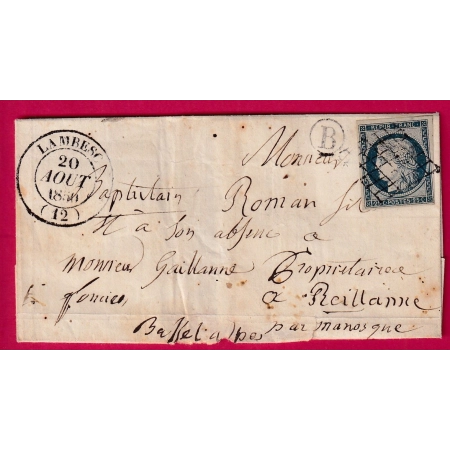 LAMBESC
20
AOUT
1850
(12)
B
REPUB. FRANC.
25 C. POSTES 25 C.
Monsieur
Baptistain Roman fils
et a son absence a
monsieur Gaillanne Propriétaire
foncier a Reillanne
Basses alpes par manosque